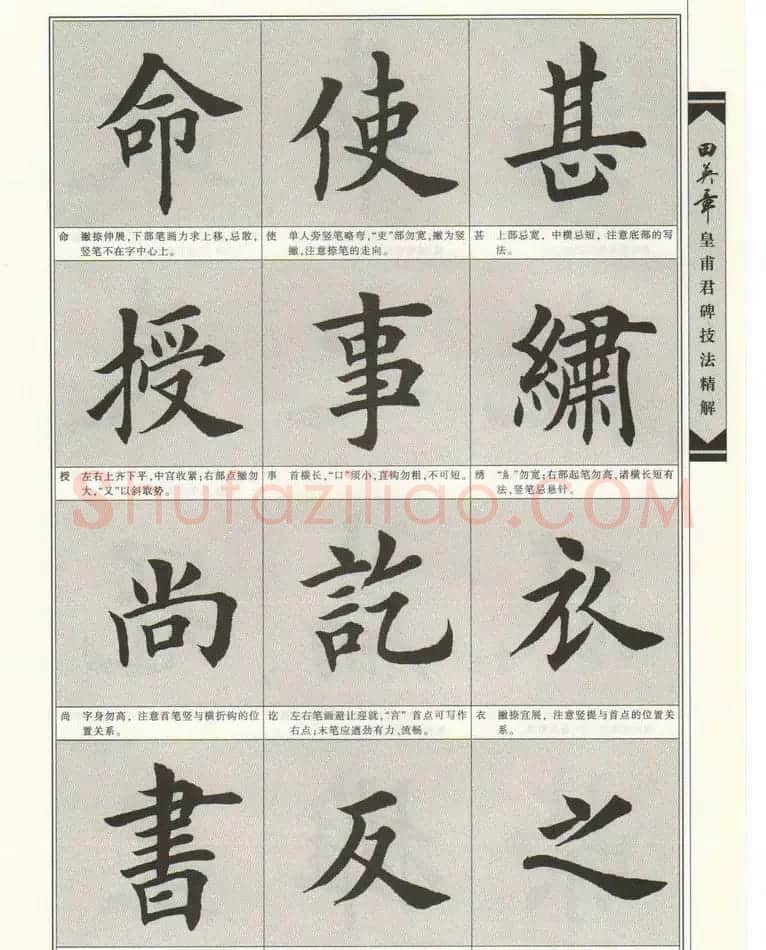 命 使 甚
命 撇捺伸展，下部笔画力求上移，忌散，
竖笔不在字中心上。
使 单人旁竖笔略弯，“吏”部勿宽，撇为竖
撇，注意捺笔的走向。
甚 上部忌宽，中横忌短，注意底部的写
法。
授 事 繡
授 左右上齐下平，中宫收紧；右部点撇勿
大，“又”以斜取势。
事 首横长，“口”须小，直钩勿粗，不可短。
绣 “糹”勿宽；右部起笔勿高，诸横长短有
法，竖笔忌悬针。
尚 訖 衣
尚 字身勿高，注意首笔竖与横折钩的位
置关系。
讫 左右笔画避让迎就，“言”首点可写作
右点；末笔应遒劲有力、流畅。
衣 撇捺宜展，注意竖提与首点的位置关
系。
書 反 之
田英章
皇甫君碑技法精解
Shufaziliao.COM